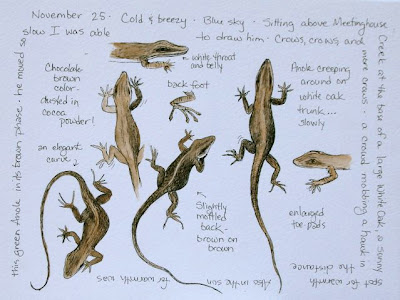 November 25 · Cold & breezy · Blue sky · Sitting above Meetinghouse
Creek at the base of a large White Oak, a sunny
spot for warmth · Also in the sun for warmth was
this green Anole in its brown phase · he moved so
slow I was able to draw him · Crows, crows and
more crows - a crowd mobbing a hawk in
the distance
white throat
and belly
Chocolate
brown
color -
dusted in
cocoa
powder!
back foot
Anole creeping
around on
white oak
trunk...
slowly
an elegant
curve
Slightly
mottled
back -
brown on
brown
enlarged
toe pads